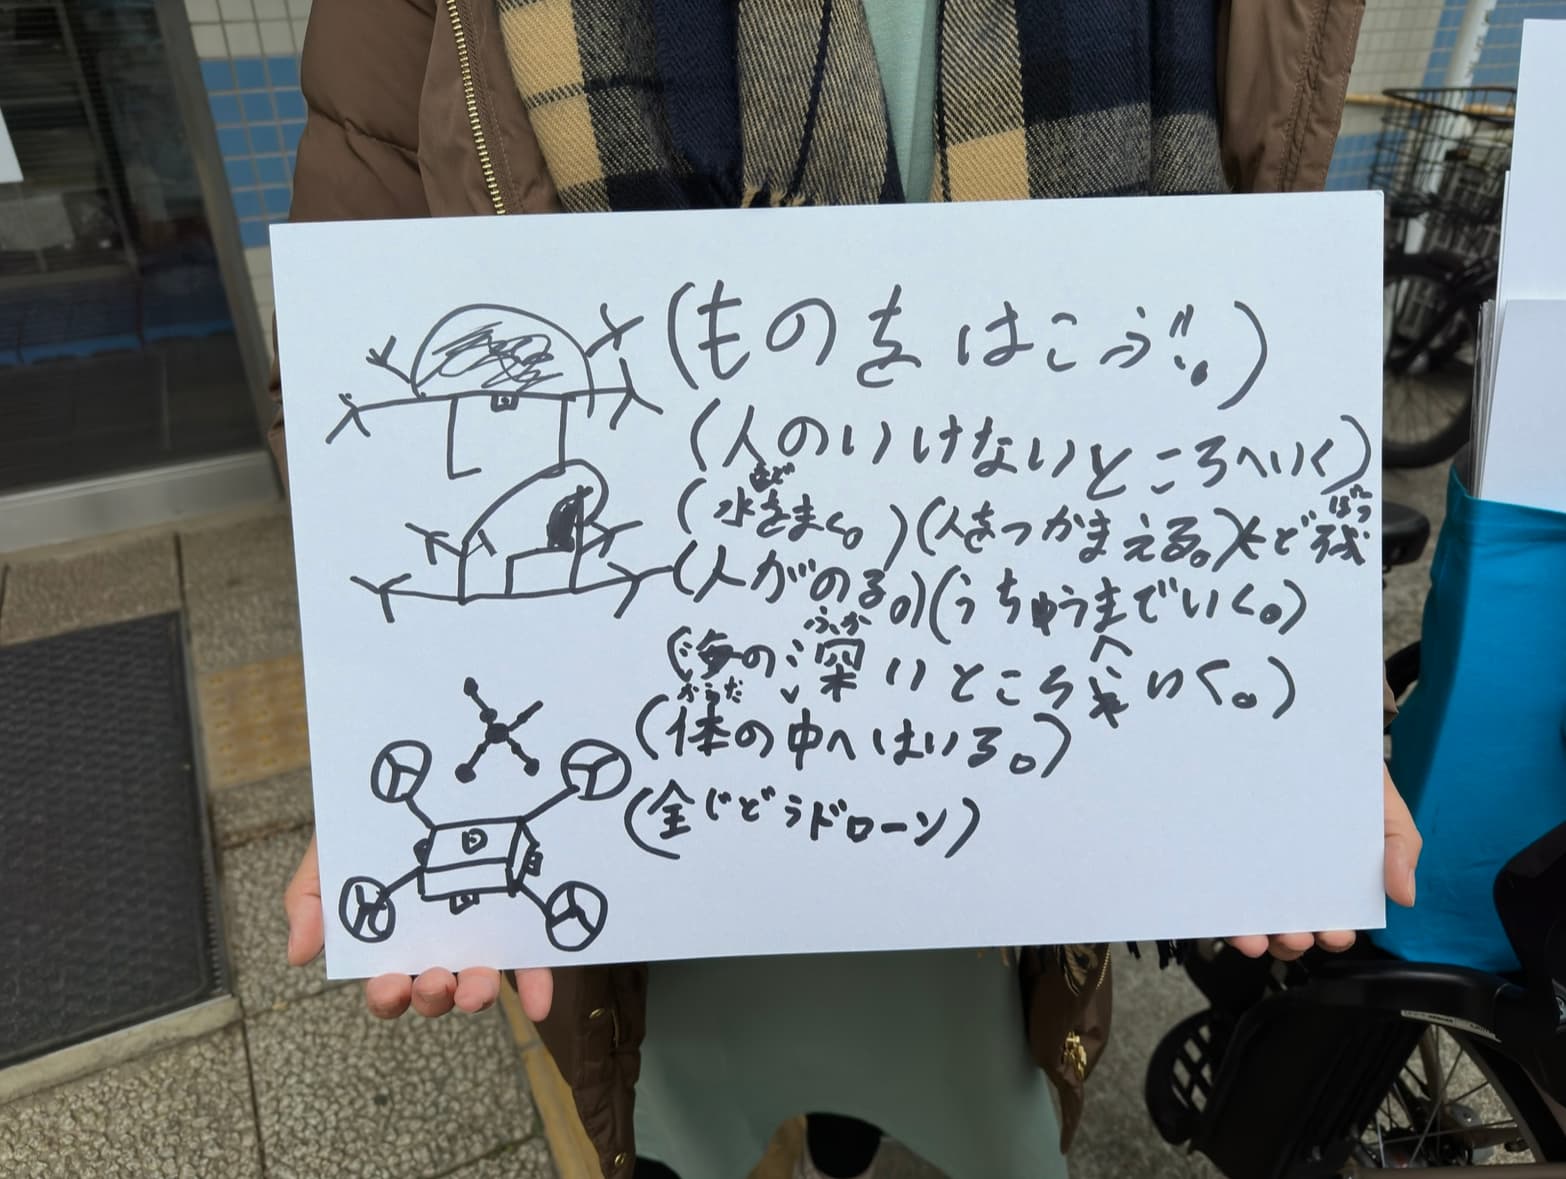 (ものをはこぶ。)
(人のいけないところへいく)
(水をまく。)(人をつかまえる。)
(人がのる。)(うちゅうまでいく。)
ふか
(海の深いところへいく。)
からだ
(体の中へはいる。)
(全じどうドローン)